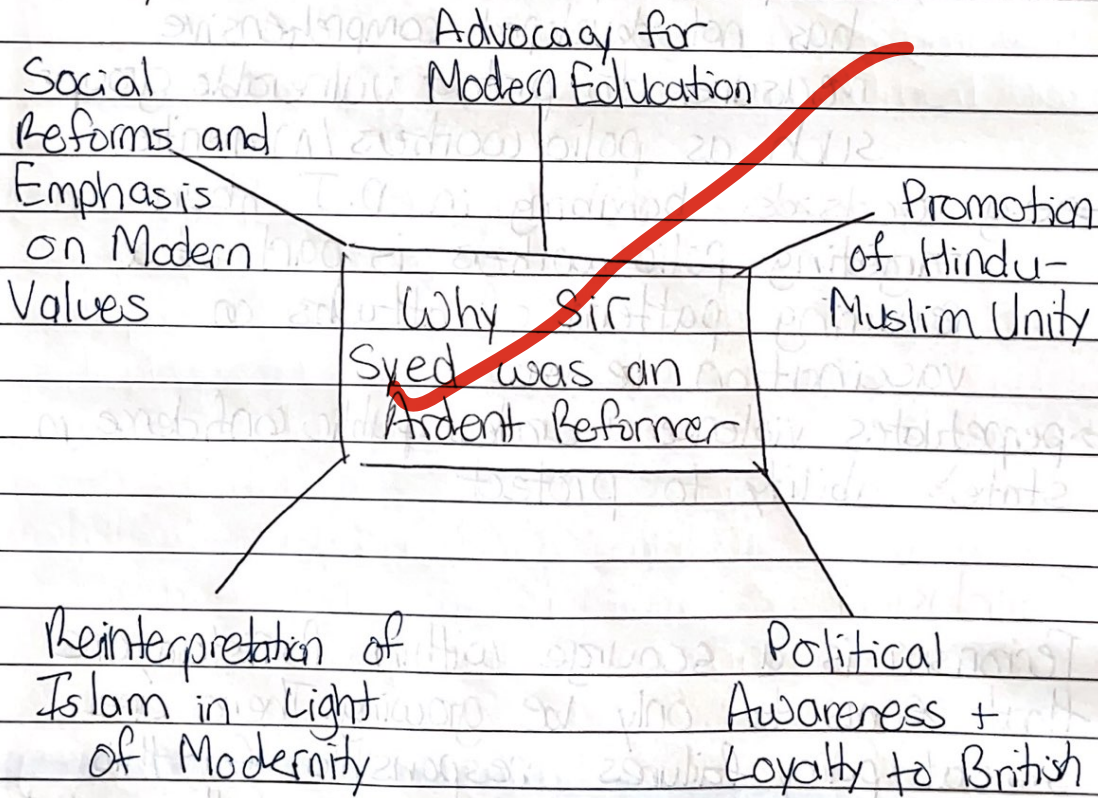 Advocacy for
Modern Education
Social
Reforms and
Emphasis
on Modern
Values
Promotion
of Hindu-
Muslim Unity
Why Sir
Syed was an
Ardent Reformer
Reinterpretation of
Islam in Light
of Modernity
Political
Awareness +
Loyalty to British